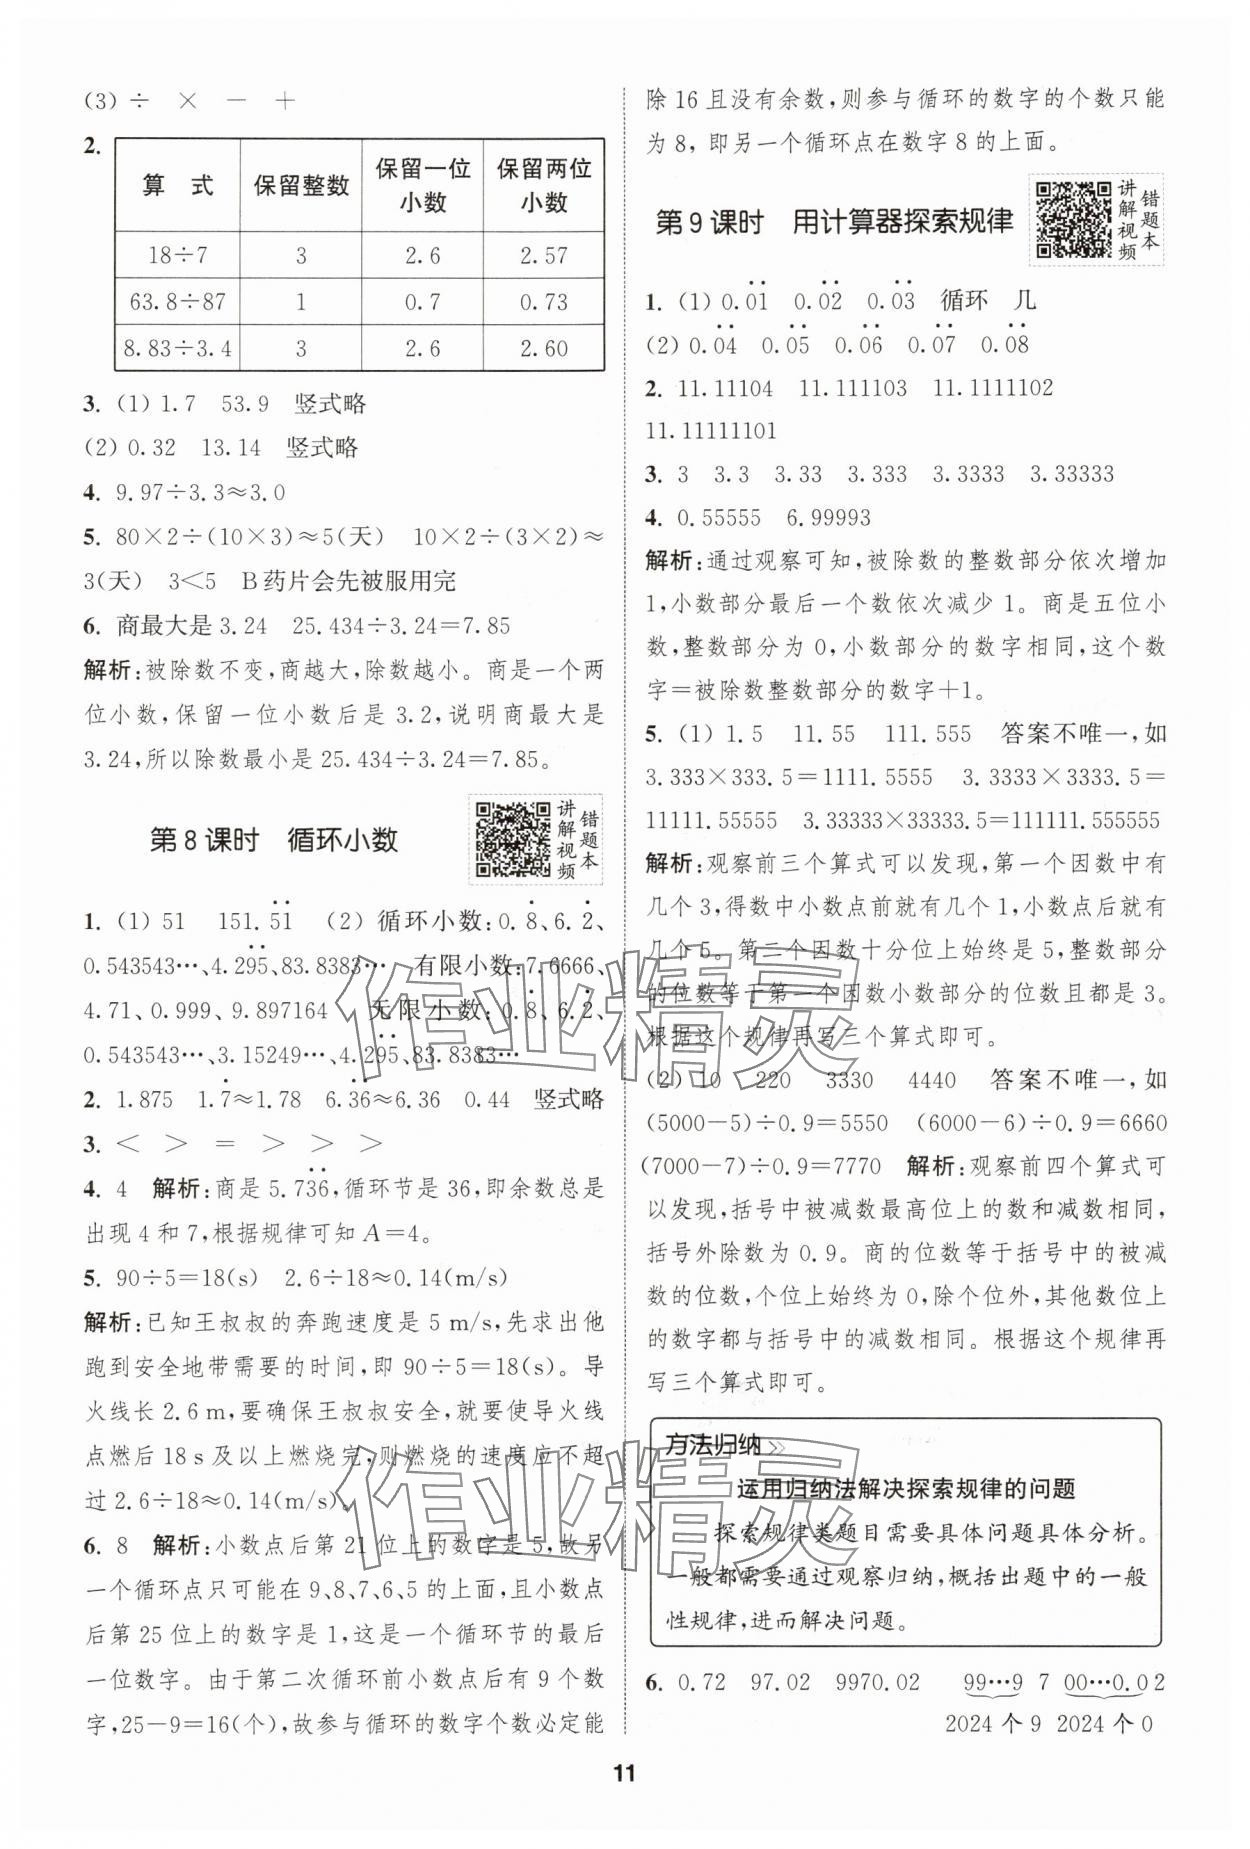 (3) ÷ × − +
2.
算 式 保留整数 保留一位小数 保留两位小数
18÷7 3 2.6 2.57
63.8÷87 1 0.7 0.73
8.83÷3.4 3 2.6 2.60
3. (1) 1.7 53.9 竖式略
(2) 0.32 13.14 竖式略
4. 9.97÷3.3≈3.0
5. 80×2÷(10×3)≈5(天) 10×2÷(3×2)≈
3(天) 3<5 B药片会先被服用完
6. 商最大是3.24 25.434÷3.24=7.85
解析:被除数不变,商越大,除数越小。商是一个两
位小数,保留一位小数后是3.2,说明商最大是
3.24,所以除数最小是25.434÷3.24=7.85。
第8课时 循环小数
讲解视频 错题本
1. (1) 51 151.5̇1̇ (2) 循环小数:0.8̇、6.2̇、
0.543543…、4.2̇95̇、83.8383… 有限小数:7.6666、
4.71、0.999、9.897164 无限小数:0.8̇、6.2̇、
0.543543…、3.15249…、4.2̇95̇、83.8383…
2. 1.875 1.7̇≈1.78 6.3̇6̇≈6.36 0.44 竖式略
3. < > = > > >
4. 4 解析:商是5.73̇6̇,循环节是36,即余数总是
出现4和7,根据规律可知A=4。
5. 90÷5=18(s) 2.6÷18≈0.14(m/s)
解析:已知王叔叔的奔跑速度是5 m/s,先求出他
跑到安全地带需要的时间,即90÷5=18(s)。导
火线长2.6 m,要确保王叔叔安全,就要使导火线
点燃后18 s及以上燃烧完,则燃烧的速度应不超
过2.6÷18≈0.14(m/s)。
6. 8 解析:小数点后第21位上的数字是5,故另
一个循环点只可能在9、8、7、6、5的上面,且小数点
后第25位上的数字是1,这是一个循环节的最后
一位数字。由于第二次循环前小数点后有9个数
字,25−9=16(个),故参与循环的数字个数必定能
除16且没有余数,则参与循环的数字的个数只能
为8,即另一个循环点在数字8的上面。
第9课时 用计算器探索规律
讲解视频 错题本
1. (1) 0.0̇1̇ 0.0̇2̇ 0.0̇3̇ 循环 几
(2) 0.0̇4̇ 0.0̇5̇ 0.0̇6̇ 0.0̇7̇ 0.0̇8̇
2. 11.11104 11.111103 11.1111102
11.11111101
3. 3 3.3 3.33 3.333 3.3333 3.33333
4. 0.55555 6.99993
解析:通过观察可知,被除数的整数部分依次增加
1,小数部分最后一个数依次减少1。商是五位小
数,整数部分为0,小数部分的数字相同,这个数
字=被除数整数部分的数字+1。
5. (1) 1.5 11.55 111.555 答案不唯一,如
3.333×333.5=1111.5555 3.3333×3333.5=
11111.55555 3.33333×33333.5=111111.555555
解析:观察前三个算式可以发现,第一个因数中有
几个3,得数中小数点前就有几个1,小数点后就有
几个5。第二个因数十分位上始终是5,整数部分
的位数等于第一个因数小数部分的位数且都是3。
根据这个规律再写三个算式即可。
(2) 10 220 3330 4440 答案不唯一,如
(5000−5)÷0.9=5550 (6000−6)÷0.9=6660
(7000−7)÷0.9=7770 解析:观察前四个算式可
以发现,括号中被减数最高位上的数和减数相同,
括号外除数为0.9。商的位数等于括号中的被减
数的位数,个位上始终为0,除个位外,其他数位上
的数字都与括号中的减数相同。根据这个规律再
写三个算式即可。
方法归纳
运用归纳法解决探索规律的问题
探索规律类题目需要具体问题具体分析。
一般都需要通过观察归纳,概括出题中的一般
性规律,进而解决问题。
6. 0.72 97.02 9970.02 99…9 7 00…0.02
2024个9 2024个0
11
作业精灵
作业精灵